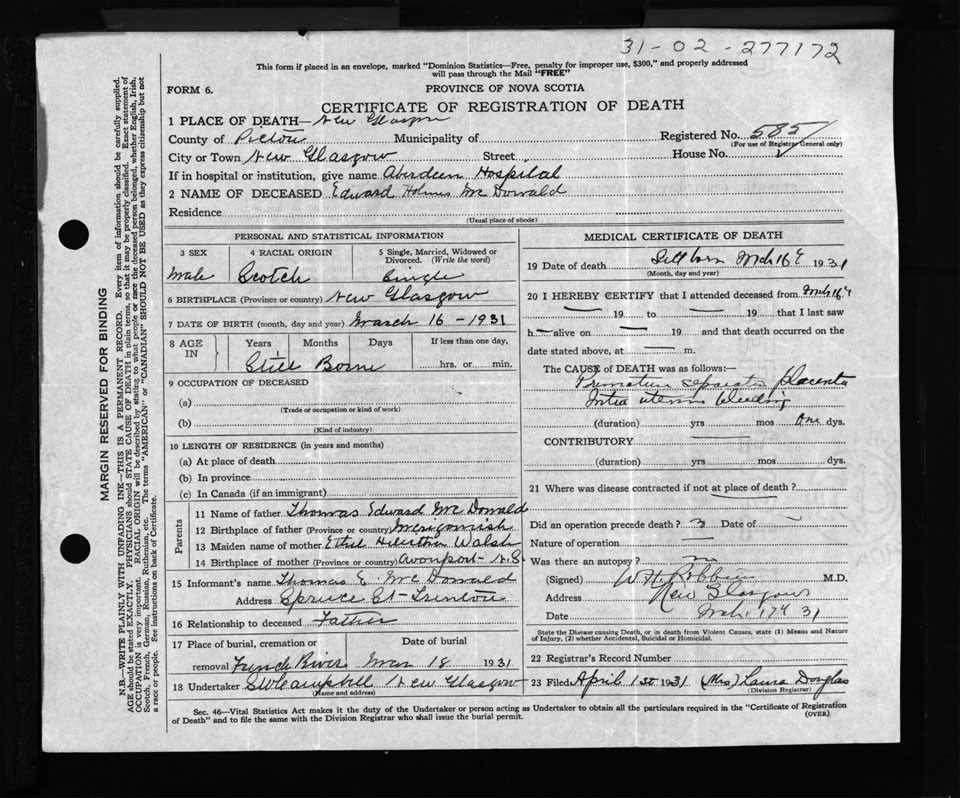 31-02-277172
This form if placed in an envelope, marked "Dominion Statistics—Free, penalty for improper use, $300," and properly addressed
will pass through the Mail "FREE"
FORM 6.
PROVINCE OF NOVA SCOTIA
CERTIFICATE OF REGISTRATION OF DEATH
1 PLACE OF DEATH— New Glasgow
County of Pictou Municipality of Registered No. 585
(For use of Registrar General only)
City or Town New Glasgow Street House No.
If in hospital or institution, give name Aberdeen Hospital
2 NAME OF DECEASED Edward Holmes McDonald
Residence
(Usual place of abode)
PERSONAL AND STATISTICAL INFORMATION
3 SEX 4 RACIAL ORIGIN 5 Single, Married, Widowed or Divorced. (Write the word)
Male Scotch Single
6 BIRTHPLACE (Province or country) New Glasgow
7 DATE OF BIRTH (month, day and year) March 16-1931
8 AGE IN Years Months Days If less than one day,
Still Borne hrs. or min.
9 OCCUPATION OF DECEASED
(a)
(Trade or occupation or kind of work)
(b)
(Kind of industry)
10 LENGTH OF RESIDENCE (in years and months)
(a) At place of death
(b) In province
(c) In Canada (if an immigrant)
Parents
11 Name of father Thomas Edward McDonald
12 Birthplace of father (Province or country) Merigomish
13 Maiden name of mother Ethel Walsh
14 Birthplace of mother (Province or country) Avonport - N.S.
15 Informant's name Thomas E. McDonald
Address Spruce St - Trenton
16 Relationship to deceased Father
17 Place of burial, cremation or Date of burial
removal French River Mar 18 1931
18 Undertaker Campbell New Glasgow
(Name and address)
MEDICAL CERTIFICATE OF DEATH
19 Date of death Still born Mch 16th 1931
(Month, day and year)
20 I HEREBY CERTIFY that I attended deceased from Mch 16th
19 to 19 that I last saw
h alive on 19 and that death occurred on
date stated above, at m.
The CAUSE of DEATH was as follows:—
Premature separated placenta
Intra uterine bleeding
(duration) yrs mos One dys.
CONTRIBUTORY
(duration) yrs mos dys.
21 Where was disease contracted if not at place of death?
Did an operation precede death? Date of
Nature of operation
Was there an autopsy? no
(Signed) M.D.
Address New Glasgow
Date Mch. 17th 31
State the Disease causing Death, or in death from Violent Causes, state (1) Means and Nature
of Injury, (2) whether Accidental, Suicidal or Homicidal.
22 Registrar's Record Number
23 Filed April 1st 1931 (Mrs) Laura Douglas
(Division Registrar)
Sec. 46—Vital Statistics Act makes it the duty of the Undertaker or person acting as Undertaker to obtain all the particulars required in the "Certificate of Registration
of Death" and to file the same with the Division Registrar who shall issue the burial permit.
(OVER)
MARGIN RESERVED FOR BINDING
N.B.—WRITE PLAINLY WITH UNFADING INK—THIS IS A PERMANENT RECORD. Every item of information should be carefully supplied.
AGE should be stated EXACTLY. PHYSICIANS should STATE CAUSE OF DEATH in plain terms, so that it may be properly classified. Exact statement of
OCCUPATION is very important. RACIAL ORIGIN will be described by stating to what people or race the deceased person belonged, whether English, Irish,
Scotch, French, German, Russian, Ruthenian, etc. The terms "AMERICAN" or "CANADIAN" SHOULD NOT BE USED as they express citizenship but not
a race or people. See instructions on back of Certificate.